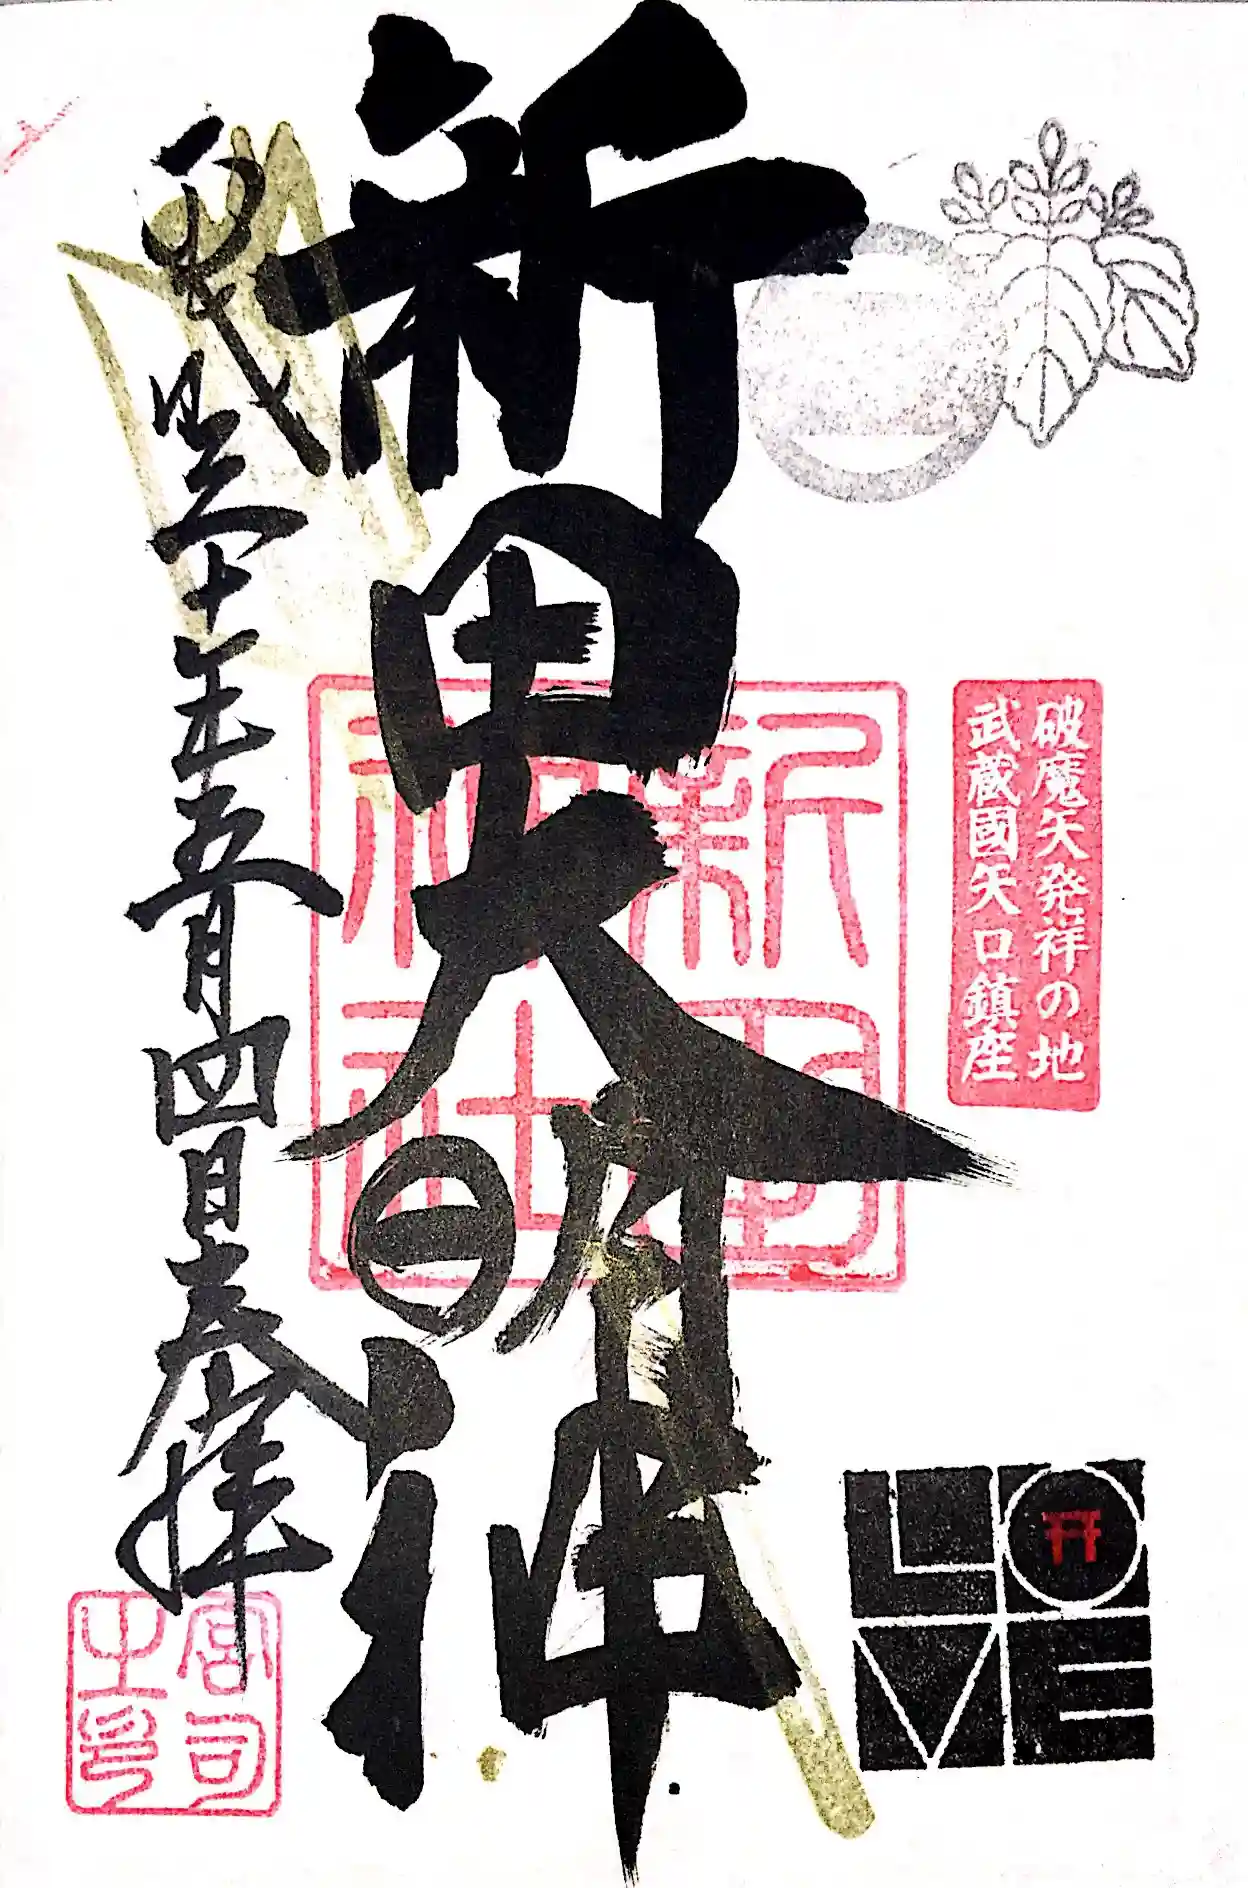 破魔矢発祥の地
武蔵國矢口鎮座
LO
VE
新田大明神
新田
神社
平成三十年五月四日奉拝
宮司
之印